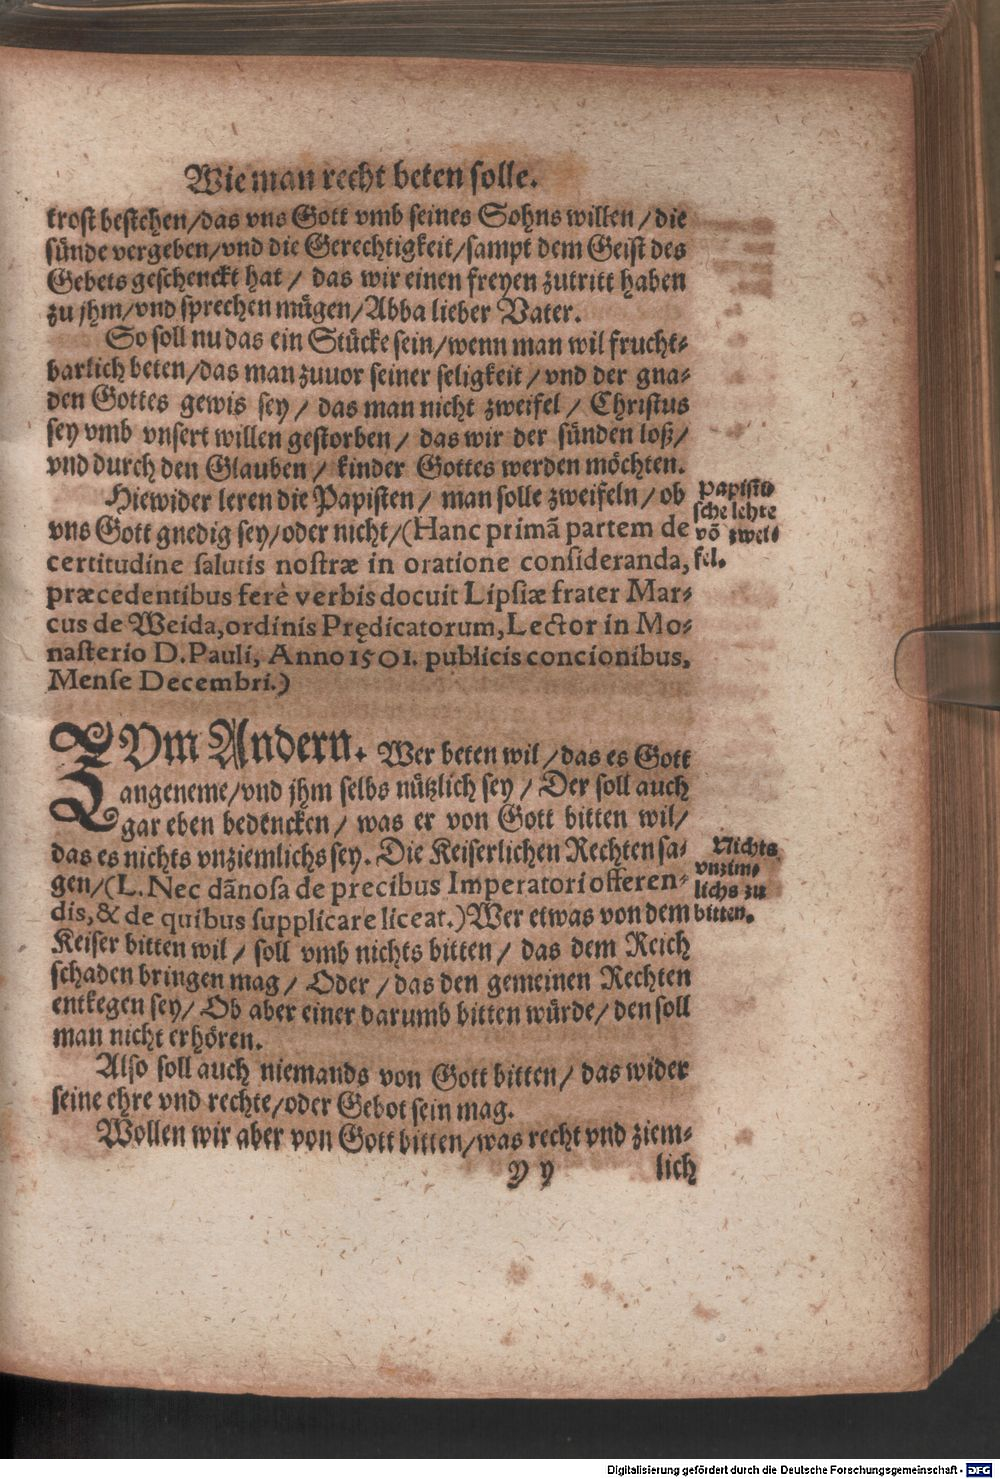 Wie man recht beten solle.
trost bestehen/das vns Gott vmb seines Sohns willen/die
sünde vergeben/vnd die Gerechtigkeit/sampt dem Geist des
Gebets geschenckt hat/ das wir einen freyen zutritt haben
zu jhm/vnd sprechen mügen/Abba lieber Vater.
So soll nu das ein Stücke sein/wenn man wil frucht-
barlich beten/das man zuuor seiner seligkeit/vnd der gna-
den Gottes gewis sey/ das man nicht zweifel/ Christus
sey vmb vnsert willen gestorben/ das wir der sünden loß/
vnd durch den Glauben/ kinder Gottes werden möchten.
Hiewider leren die Papisten/ man solle zweifeln/ob
vns Gott gnedig sey/oder nicht/(Hanc primã partem de
certitudine salutis nostræ in oratione consideranda,
præcedentibus ferè verbis docuit Lipsiæ frater Mar-
cus de Weida,ordinis Prędicatorum,Lector in Mo-
nasterio D.Pauli, Anno 1501. publicis concionibus,
Mense Decembri.)
Papisti-
sche lehre
võ zwei-
fel.
ZVm Andern. Wer beten wil/das es Gott
angeneme/vnd jhm selbs nützlich sey/ Der soll auch
gar eben bedencken/ was er von Gott bitten wil/
das es nichts vnziemlichs sey. Die Keiserlichen Rechten sa-
gen/(L. Nec dãnosa de precibus Imperatori offeren-
dis,& de quibus supplicare liceat.)Wer etwas von dem
Keiser bitten wil/ soll vmb nichts bitten/ das dem Reich
schaden bringen mag/ Oder/das den gemeinen Rechten
entkegen sey/ Ob aber einer darumb bitten würde/den soll
man nicht erhören.
Nichts
vnzim-
lichs zu
bitten.
Also soll auch niemands von Gott bitten/ das wider
seine ehre vnd rechte/oder Gebot sein mag.
Wollen wir aber von Gott bitten/was recht vnd ziem-
Y y
lich
Digitalisierung gefördert durch die Deutsche Forschungsgemeinschaft - DFG